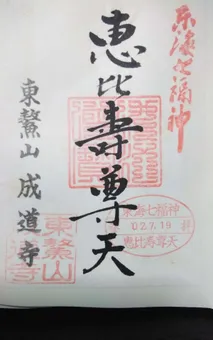 東海七福神
恵比寿尊天
東鰲山 成道寺
東海七福神
02.7.19
恵比寿尊天
東鰲山
成道寺